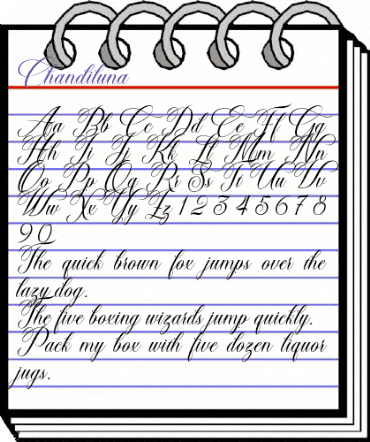 Chandiluna
Aa Bb Cc Dd Ee Ff Gg
Hh Ii Jj Kk Ll Mm Nn
Oo Pp Qq Rr Ss Tt Uu Vv
Ww Xx Yy Zz 1 2 3 4 5 6 7 8
9 0
The quick brown fox jumps over the
lazy dog.
The five boxing wizards jump quickly.
Pack my box with five dozen liquor
jugs.